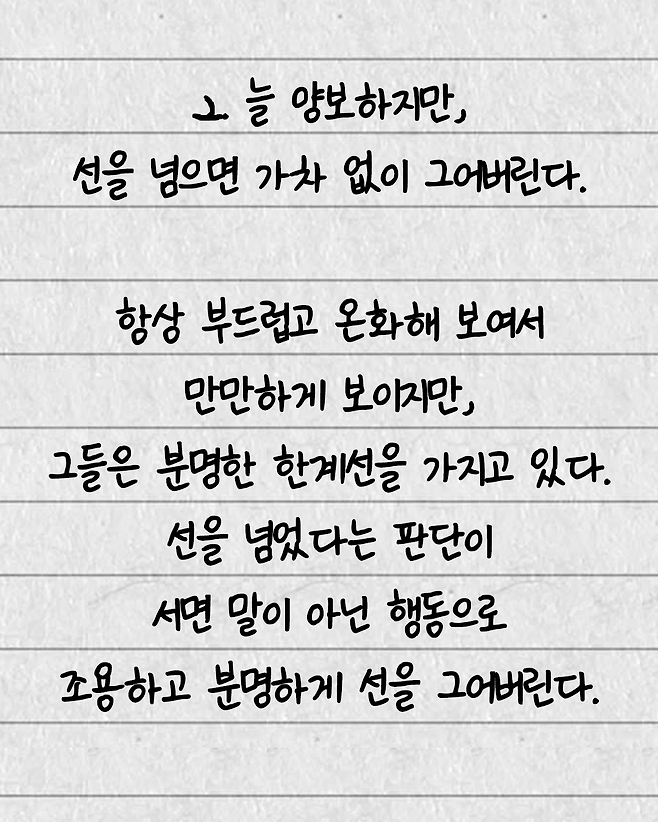 2. 늘 양보하지만,
선을 넘으면 가차 없이 그어버린다.
항상 부드럽고 온화해 보여서
만만하게 보이지만,
그들은 분명한 한계선을 가지고 있다.
선을 넘었다는 판단이
서면 말이 아닌 행동으로
조용하고 분명하게 선을 그어버린다.